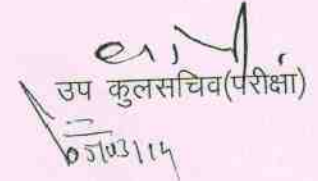 उप कुलसचिव(परीक्षा)
05/03/14